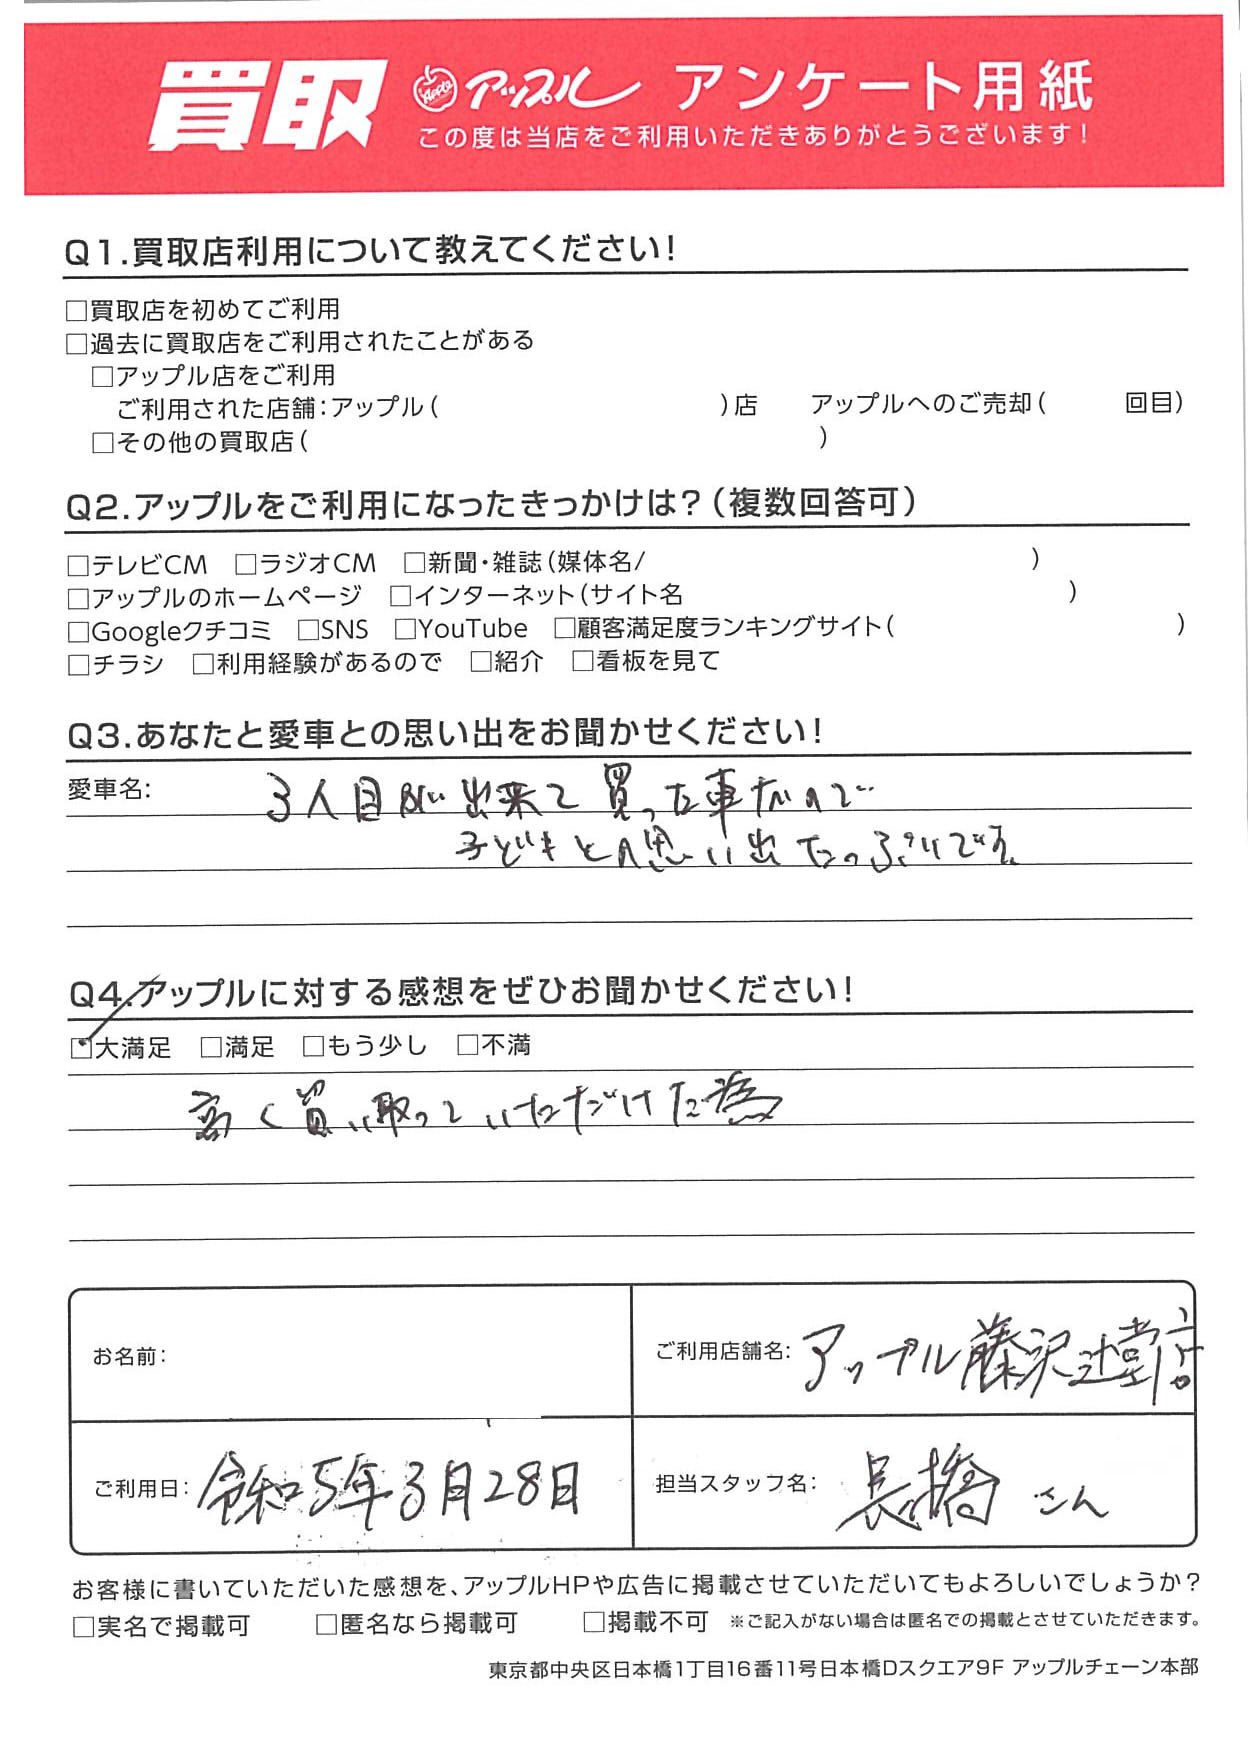 買取 Apple アップル アンケート用紙
この度は当店をご利用いただきありがとうございます!
Q1.買取店利用について教えてください!
□買取店を初めてご利用
□過去に買取店をご利用されたことがある
□アップル店をご利用
ご利用された店舗:アップル( )店 アップルへのご売却( 回目)
□その他の買取店( )
Q2.アップルをご利用になったきっかけは?(複数回答可)
□テレビCM □ラジオCM □新聞・雑誌(媒体名/ )
□アップルのホームページ □インターネット(サイト名 )
□Googleクチコミ □SNS □YouTube □顧客満足度ランキングサイト( )
□チラシ □利用経験があるので □紹介 □看板を見て
Q3.あなたと愛車との思い出をお聞かせください!
愛車名: 3人目が出来て買った車なので
子どもとの思い出たっぷりです。
Q4.アップルに対する感想をぜひお聞かせください!
☑大満足 □満足 □もう少し □不満
高く買い取っていただけた為
お名前:
ご利用店舗名: アップル藤沢辻堂店
ご利用日: 令和5年3月28日
担当スタッフ名: 長橋さん
お客様に書いていただいた感想を、アップルHPや広告に掲載させていただいてもよろしいでしょうか?
□実名で掲載可 □匿名なら掲載可 □掲載不可 ※ご記入がない場合は匿名での掲載とさせていただきます。
東京都中央区日本橋1丁目16番11号日本橋Dスクエア9F アップルチェーン本部